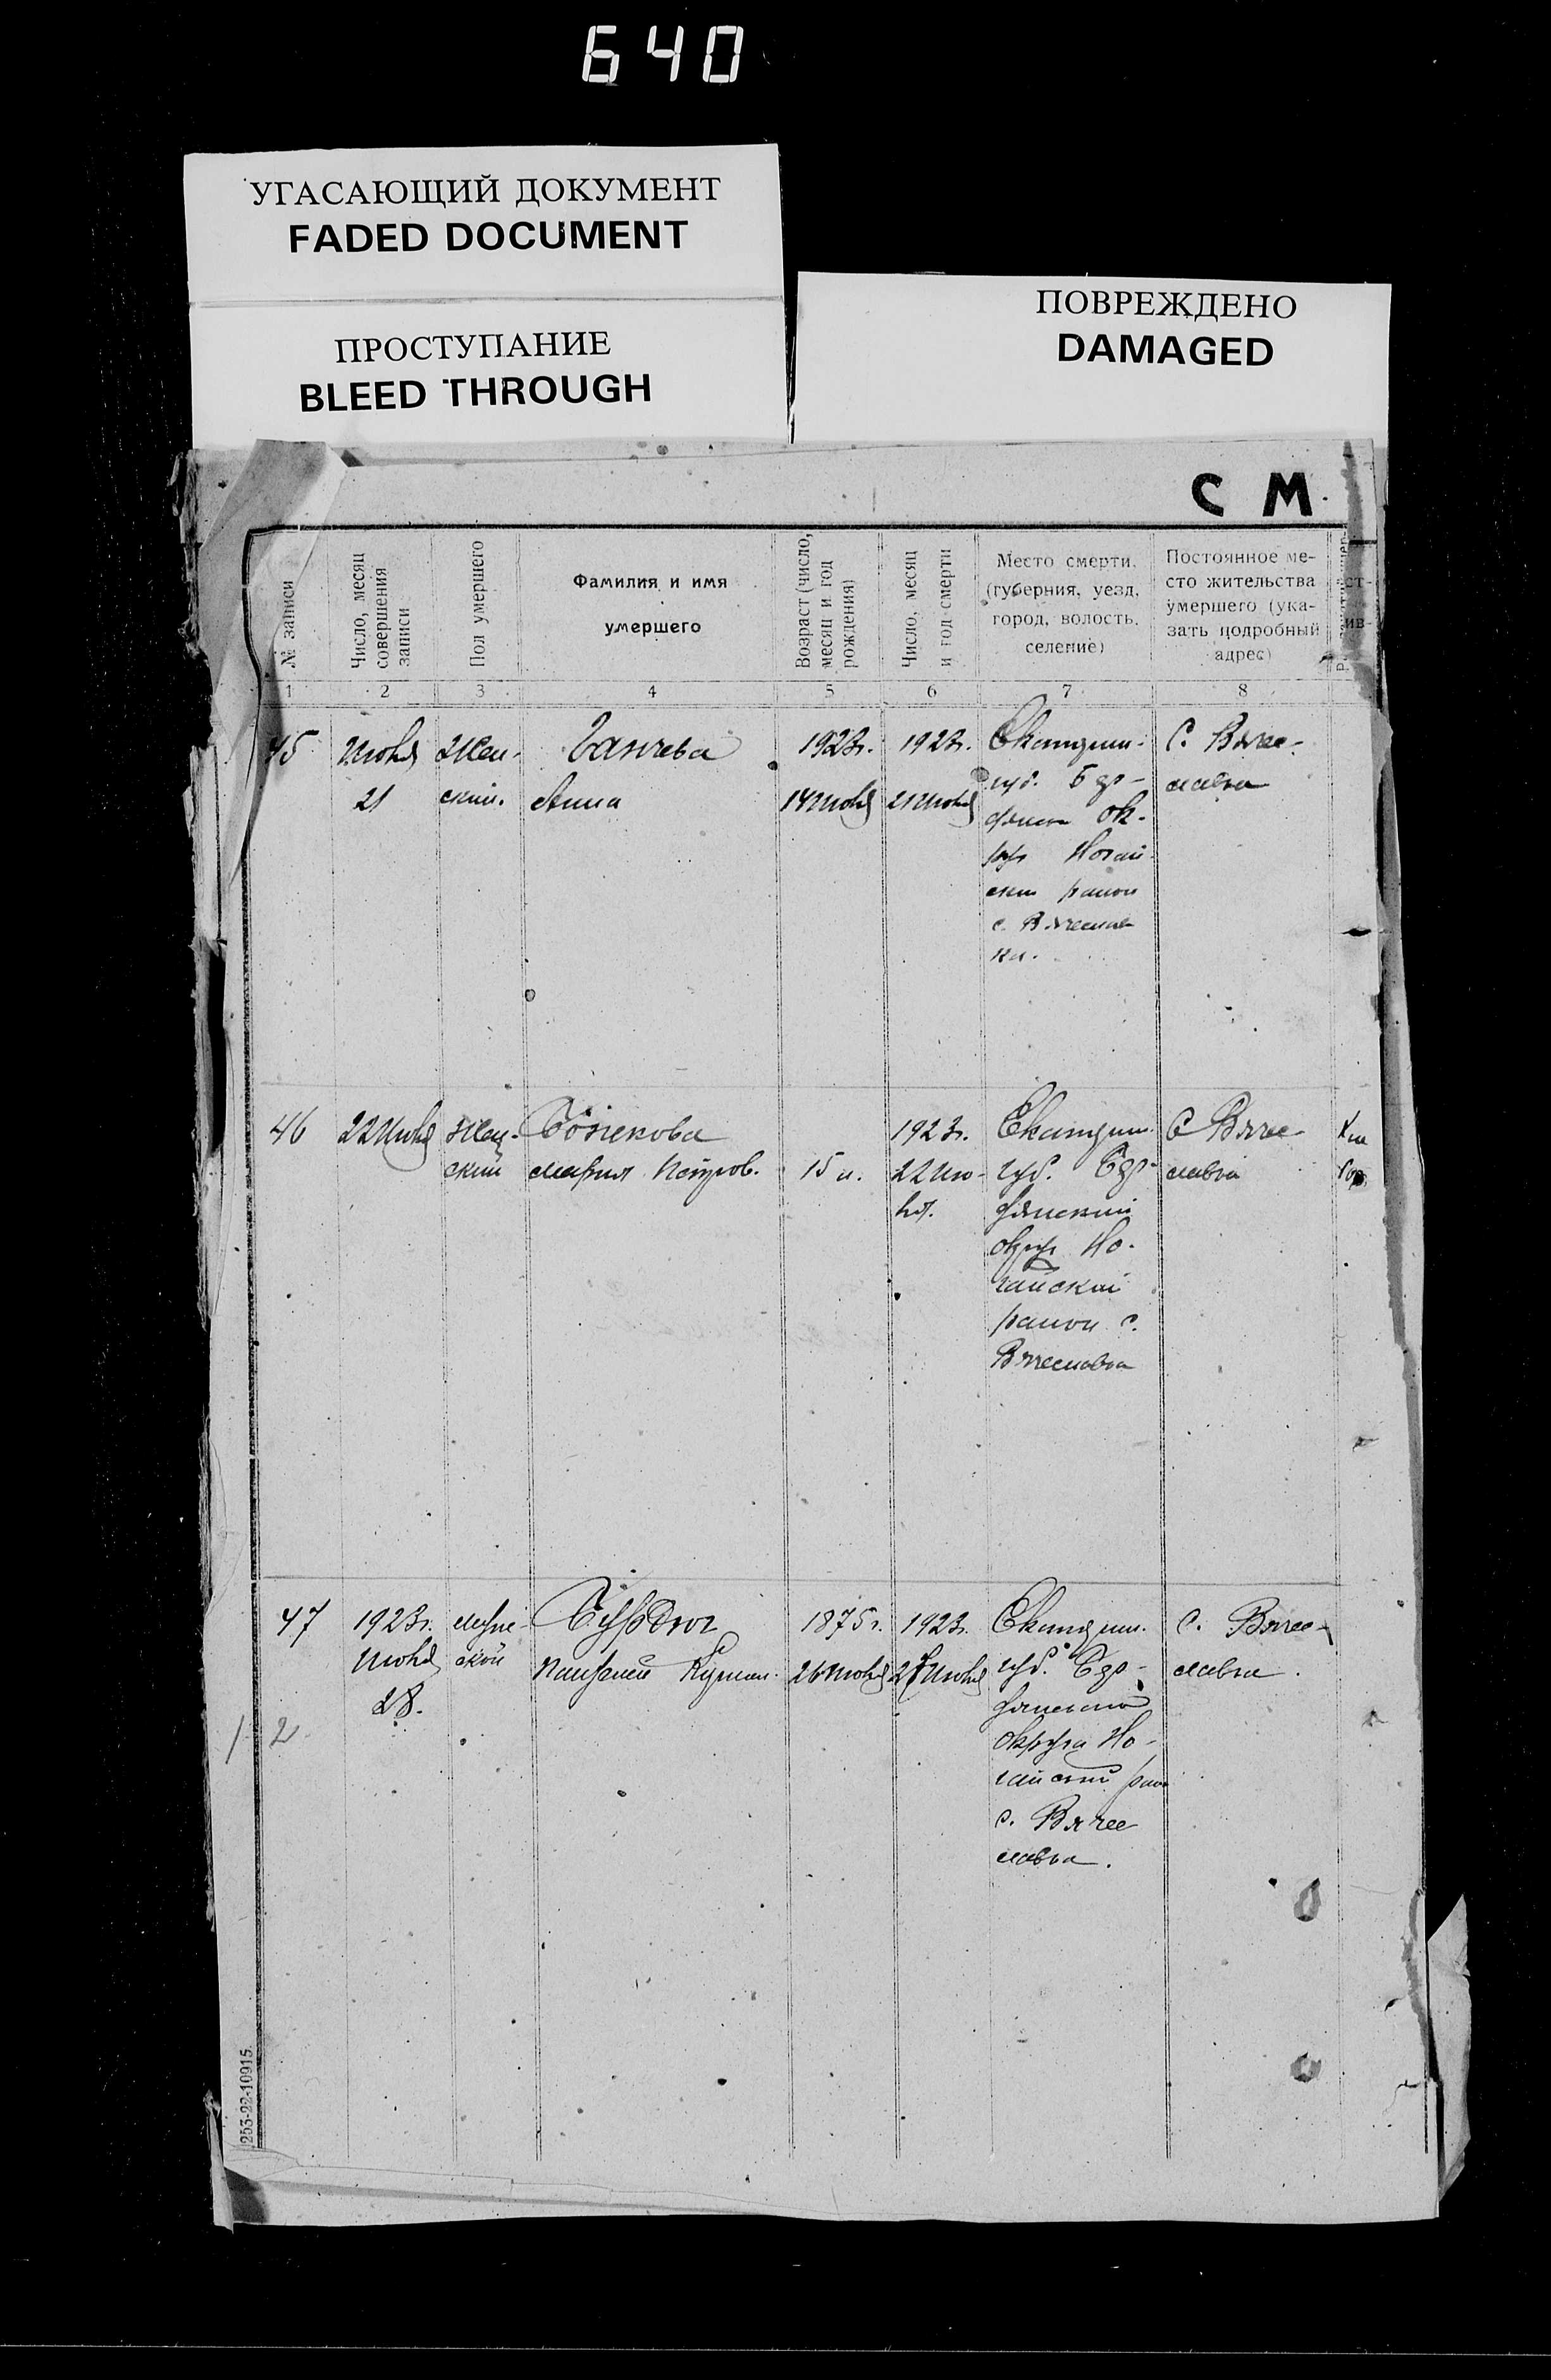 640
УГАСАЮЩИЙ ДОКУМЕНТ
FADED DOCUMENT
ПРОСТУПАНИЕ
BLEED THROUGH
ПОВРЕЖДЕНО
DAMAGED
С М
№ записи
Число, месяц
совершения
записи
Пол умершего
Фамилия и имя
умершего
Возраст (число,
месяц и год
рождения)
Число, месяц
и год смерти
Место смерти,
(губерния, уезд,
город, волость,
селение)
Постоянное ме-
сто жительства
умершего (ука-
зать подробный
адрес)
1 2 3 4 5 6 7 8
45
Июня
21
Жен-
ский.
Ганчева
Анна
1923г.
14 Июня
1923г.
21 Июня
губ. Бдр-
Ок-
руг Ногай-
ский район
с. Вячеслав
ка.
С. Вячее-
славка
46
22 Июня
Жен-
ский
Мария Петров.
15 л.
1923г.
22 Ию-
ня.
губ. Бдр-
дянский
округ Но-
гайский
район с.
Вячеславка
С Вячее-
славка
47
1923г.
Июня
28.
Муж-
ской
1875г.
26 Июня
1923г.
Июня
губ. Бдр-
дянского
округа Но-
гайский
с. Вячее
славка.
с. Вячее-
славка.
1 2
253-22-10915.